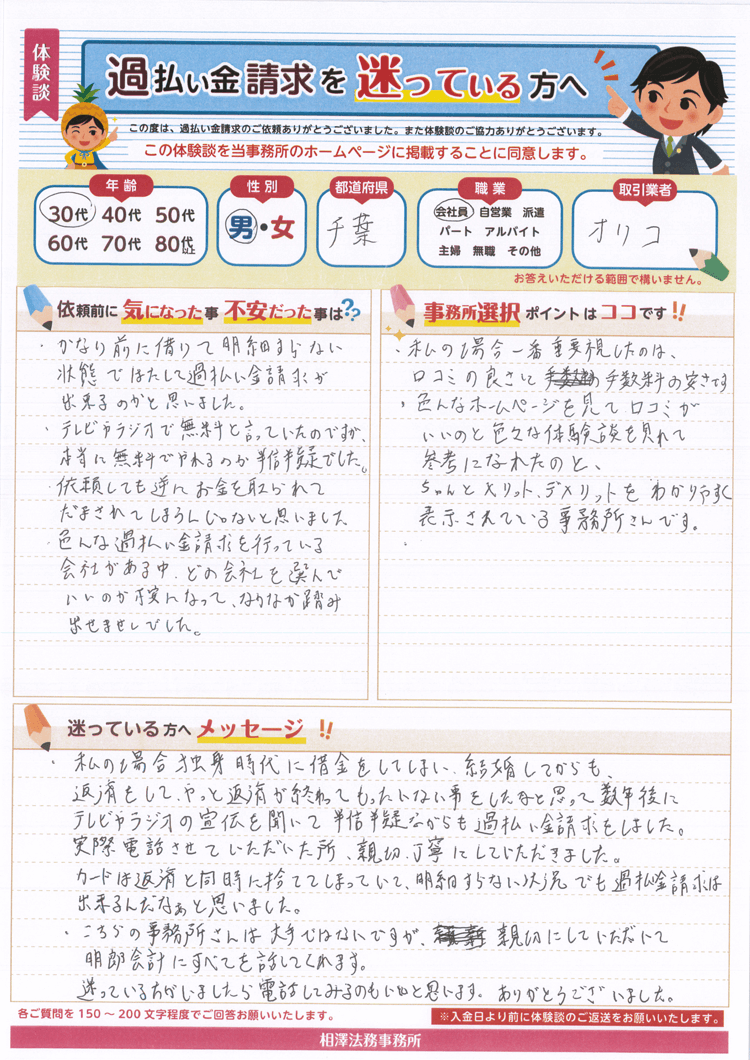 体験談
過払い金請求を迷っている方へ
この度は、過払い金請求のご依頼ありがとうございました。また体験談のご協力ありがとうございます。
この体験談を当事務所のホームページに掲載することに同意します。
年齢 性別 都道府県 職業 取引業者
30代 40代 50代
60代 70代 80代以上
男・女
千葉
会社員 自営業 派遣
パート アルバイト
主婦 無職 その他
オリコ
お答えいただける範囲で構いません。
依頼前に気になった事 不安だった事は??
・かなり前に借りて明細すらない
状態ではたして過払い金請求が
出来るのかと思いました。
・テレビやラジオで無料と言っていたのですが、
本当に無料でやれるのか半信半疑でした。
・依頼しても逆にお金を取られて
だまされてしまうんじゃないと思いました
・色んな過払い金請求を行っている
会社がある中、どの会社を選んで
いいのか不安になって、なかなか踏み
出せませんでした。
事務所選択ポイントはココです!!
・私の場合一番重要視したのは、
口コミの良さと 手数料の安さです
・色んなホームページを見て口コミが
いいのと色々な体験談を見れて
参考になれたのと、
ちゃんとメリット、デメリットをわかりやすく
表示されている事務所さんです。
・
迷っている方へメッセージ!!
・私の場合独身時代に借金をしてしまい、結婚してからも、
返済をして、やっと返済が終わってもったいない事をしたなと思って数年後に
テレビやラジオの宣伝を聞いて半信半疑ながらも過払い金請求をしました。
実際電話させていただいた所、親切、丁寧にしていただきました。
カードは返済と同時に捨ててしまっていて、明細すらない状況でも過払金請求は
出来るんだなぁと思いました。
・こちらの事務所さんは大手ではないですが、 親切にしていただいて
明朗会計にすべてを話してくれます。
迷っている方がいましたら電話してみるのもいいと思います。ありがとうございました。
各ご質問を150〜200文字程度でご回答お願いいたします。
※入金日より前に体験談のご返送をお願いいたします。
相澤法務事務所